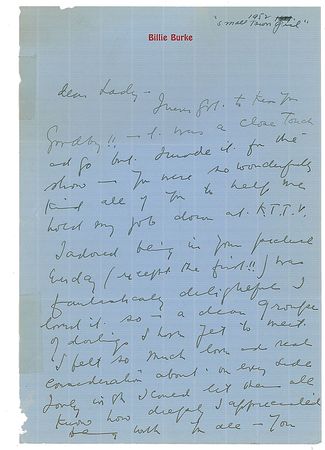 1952
"Small Town Girl"
Billie Burke
Dear Lady - I never got to kiss you
Goodby!! - It was a close Touch
and go but I made it for the
show - You were so wonderfully
kind all of you to help me
hold my job down at K.T.T.V.
I adored being in your picture
Every day (except the first!!) was
fantastically delightful I
loved it. so - a dear groupe
of darlings I hope yet to meet.
I felt so much love and real
consideration about on every side
I only wish I could let them all
Know how deeply I appreciated
being with You all - You